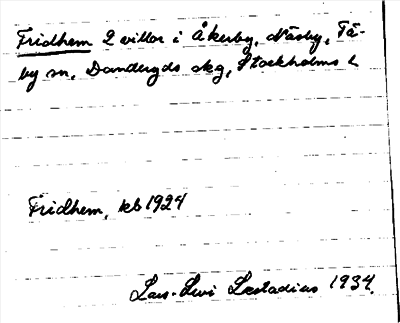 Fridhem 2 villor i Åkerby, Näsby, Tä-
by sn, Danderyds skg, Stockholms l
Fridhem, kb 1924
Lars-Levi Læstadius 1934.